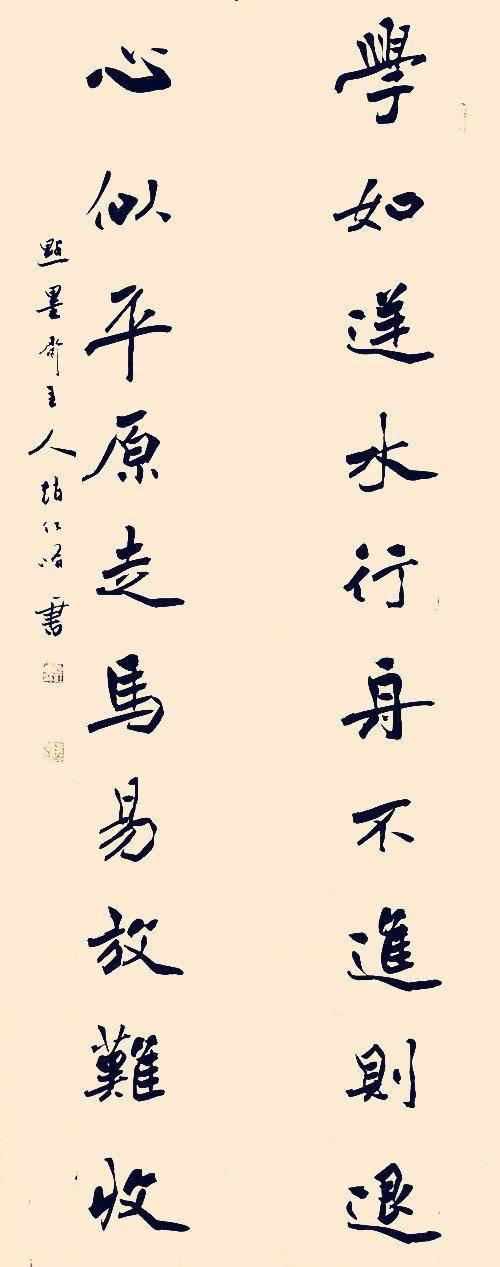 學如逆水行舟不進則退
心似平原走馬易放難收
點墨齋主人趙仁鳴書